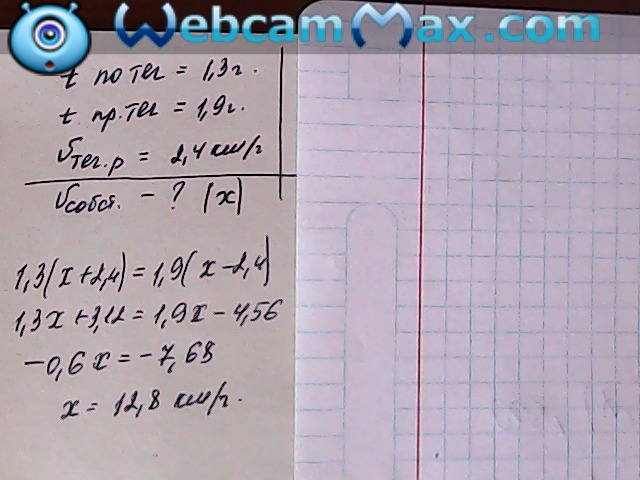 WebcamMax.com
t по теч = 1,3г.
t пр.теч = 1,9г.
Vтеч.р = 2,4 км/г
Vсобст. – ? (x)
1,3(x+2,4) = 1,9(x–2,4)
1,3x+3,12 = 1,9x – 4,56
–0,6x = –7,68
x = 12,8 км/г.